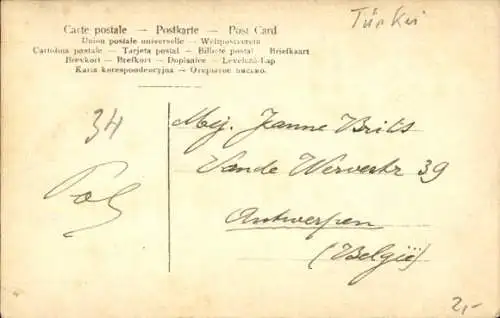 Türkei
Carte postale — Postkarte — Post Card
Union postale universelle — Weltpostverein
Cartolina postale — Tarjeta postal — Billete postal — Briefkaart
Brevkort — Brefkort — Dopisnice — Levelező-Lap
Karta korespondencyjna — Открытое письмо.
34
Mej. Jeanne Brits
Vande Wervestr 39
Antwerpen
(België)
2,-